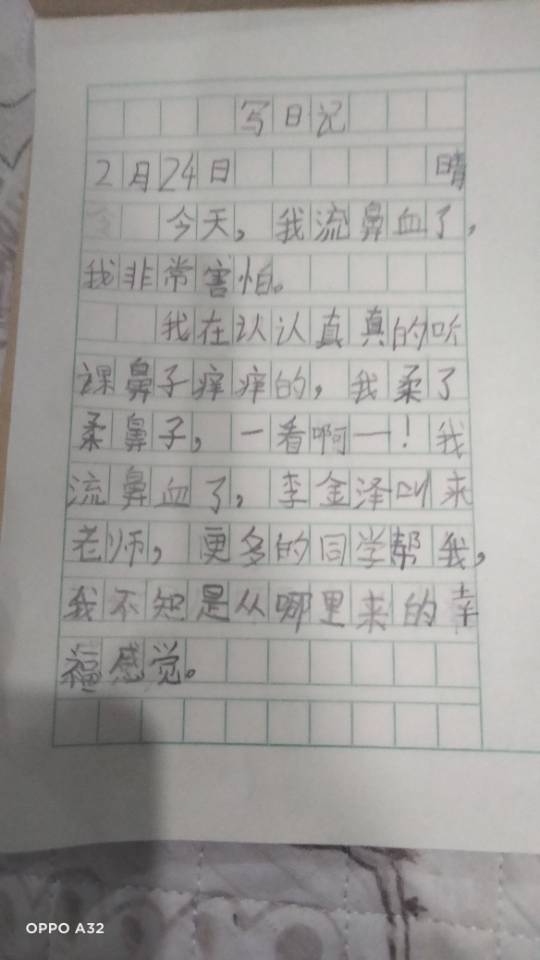 写日记
2月24日 晴
今天，我流鼻血了，
我非常害怕。
我在认认真真的听
课鼻子痒痒的，我柔了
柔鼻子，一看啊一！我
流鼻血了，李金泽叫来
老师，更多的同学帮我，
我不知是从哪里来的幸
福感觉。
OPPO A32